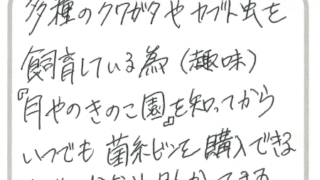 多種のクワガタやカブト虫を
飼育している為（趣味）
『月やのきのこ園』を知ってから
いつでも菌糸ビンを購入できる